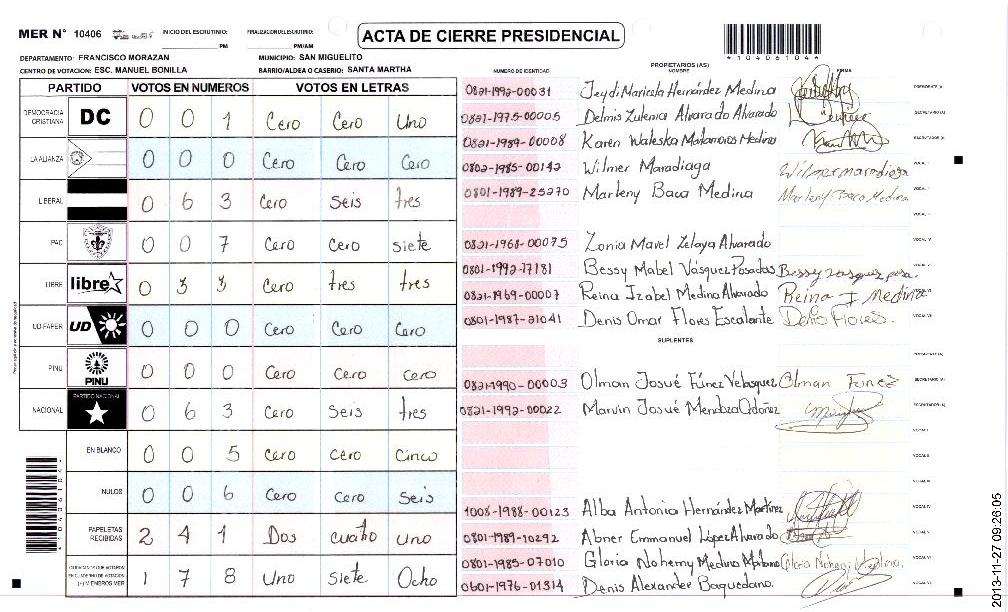 MER N° 10406
INICIO DEL ESCRUTINIO: PM
FINALIZACION DEL ESCRUTINIO: PM/AM
ACTA DE CIERRE PRESIDENCIAL
*10406104*
DEPARTAMENTO: FRANCISCO MORAZAN
MUNICIPIO: SAN MIGUELITO
CENTRO DE VOTACION: ESC. MANUEL BONILLA
BARRIO/ALDEA O CASERIO: SANTA MARTHA
PARTIDO VOTOS EN NUMEROS VOTOS EN LETRAS
DEMOCRACIA CRISTIANA DC 0 0 1 Cero Cero Uno
LA ALIANZA 0 0 0 Cero Cero Cero
LIBERAL 0 6 3 Cero Seis tres
PAC 0 0 7 Cero Cero siete
LIBRE libre 0 3 3 Cero tres tres
UD-FAPER UD 0 0 0 Cero Cero Cero
PINU PINU 0 0 0 Cero Cero Cero
NACIONAL PARTIDO NACIONAL 0 6 3 Cero Seis tres
EN BLANCO 0 0 5 Cero Cero Cinco
NULOS 0 0 6 Cero Cero Seis
PAPELETAS RECIBIDAS 2 4 1 Dos cuatro uno
CIUDADANOS QUE VOTARON EN CUADERNO DE VOTACION (+) MIEMBROS MER 1 7 8 Uno Siete Ocho
PROPIETARIOS (AS)
NUMERO DE IDENTIDAD NOMBRE FIRMA
0821-1992-00031 Jeydi Maricela Hernández Medina PRESIDENTE (A)
0801-1975-00005 Delmis Zulenia Alvarado Alvarado SECRETARIO (A)
0821-1989-00008 Karen Waleska Matamoros Medina ESCRUTADOR (A)
0802-1985-00142 Wilmer Maradiaga Wilmer maradiaga VOCAL I
0801-1989-25270 Marleny Baca Medina Marleny Baca Medina VOCAL II
VOCAL III
0821-1968-00075 Zonia Mavel Zelaya Alvarado VOCAL IV
0801-1992-17181 Bessy Mabel Vásquez Posadas Bessy vasquez posa. VOCAL V
0821-1969-00007 Reina Izabel Medina Alvarado Reina I Medina VOCAL VI
0801-1987-21041 Denis Omar Flores Escalante Denis Flores. VOCAL VII
SUPLENTES
PRESIDENTE (A)
0821-1990-00003 Olman Josué Fúnez Velasquez Olman Funez SECRETARIO (A)
0821-1992-00022 Marvin Josué Mendoza Ordonez ESCRUTADOR (A)
VOCAL I
VOCAL II
VOCAL III
1008-1988-00123 Alba Antonia Hernández Martínez VOCAL IV
0801-1989-10292 Abner Emmanuel López Alvarado VOCAL V
0801-1985-07010 Gloria Nohemy Medina VOCAL VI
0601-1976-01314 Denis Alexander Baquedano. VOCAL VII
*10406104*
2013-11-27 09:26:05